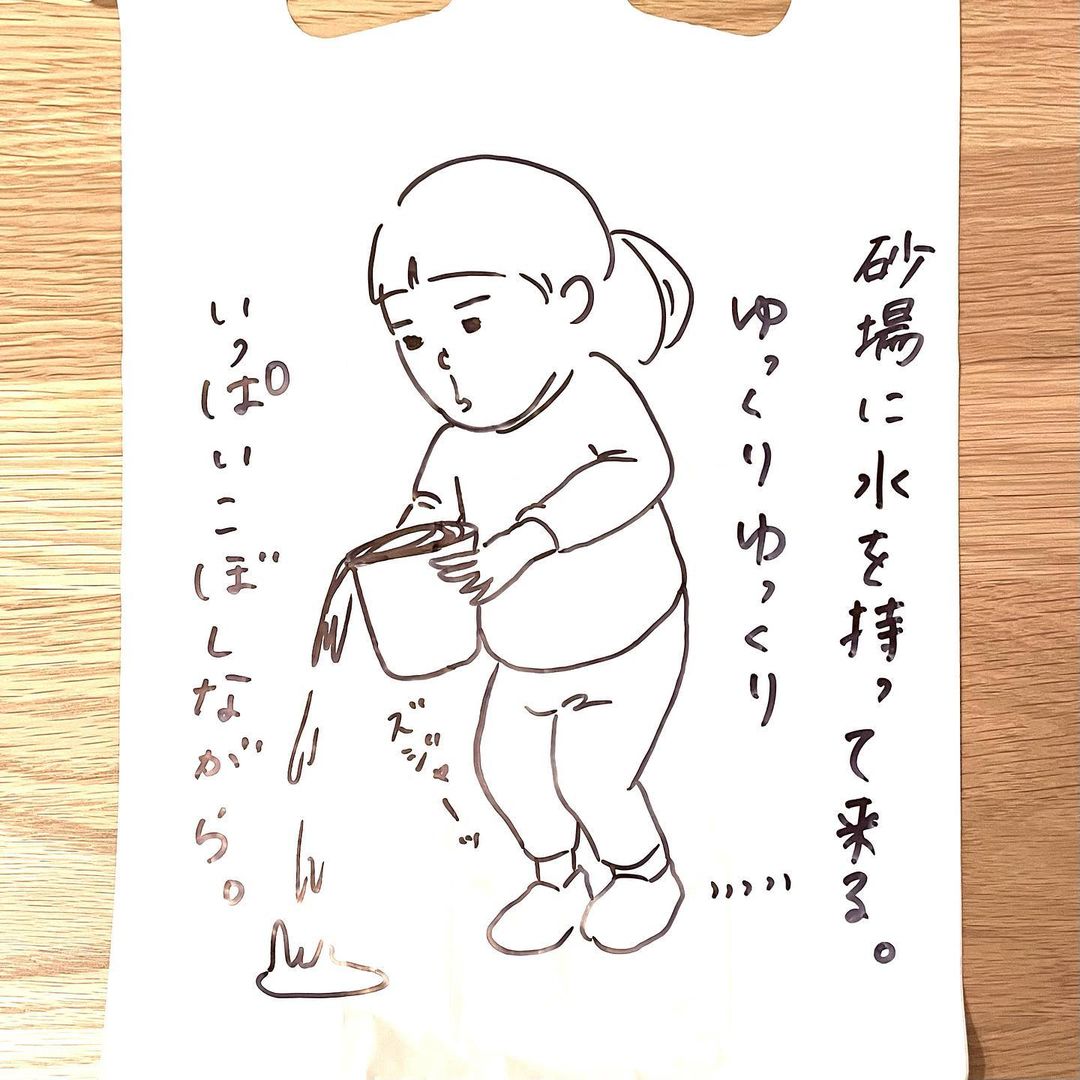 砂場に水を持って来る。
ゆっくりゆっくり
いっぱいこぼしながら。
ズジャーッ